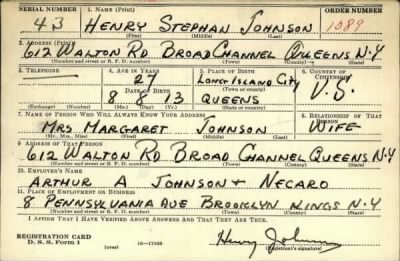 SERIAL NUMBER 1. NAME (Print) ORDER NUMBER
43 HENRY STEPHAN JOHNSON 1089
(First) (Middle) (Last)
2. ADDRESS (Print)
612 WALTON RD BROAD CHANNEL QUEENS N.Y
(Number and street or R. F. D. number) (Town) (County) (State)
3. TELEPHONE 4. AGE IN YEARS 5. PLACE OF BIRTH 6. COUNTRY OF CITIZENSHIP
27 LONG ISLAND CITY
DATE OF BIRTH (Town or county)
8 8 13 QUEENS U.S.
(Exchange) (Number) (Mo.) (Day) (Yr.) (State or country)
7. NAME OF PERSON WHO WILL ALWAYS KNOW YOUR ADDRESS 8. RELATIONSHIP OF THAT PERSON
MRS MARGARET JOHNSON WIFE
(Mr., Mrs., Miss) (First) (Middle) (Last)
9. ADDRESS OF THAT PERSON
612 WALTON RD BROAD CHANNEL QUEENS N.Y
(Number and street or R. F. D. number) (Town) (County) (State)
10. EMPLOYER'S NAME
ARTHUR A JOHNSON + NECARO
11. PLACE OF EMPLOYMENT OR BUSINESS
8 PENNSYLVANIA AVE BROOKLYN KINGS N.Y
(Number and street or R. F. D. number) (Town) (County) (State)
I AFFIRM THAT I HAVE VERIFIED ABOVE ANSWERS AND THAT THEY ARE TRUE.
REGISTRATION CARD
D. S. S. Form 1 (over) 16—17105 Henry Johnson
(Registrant's signature)